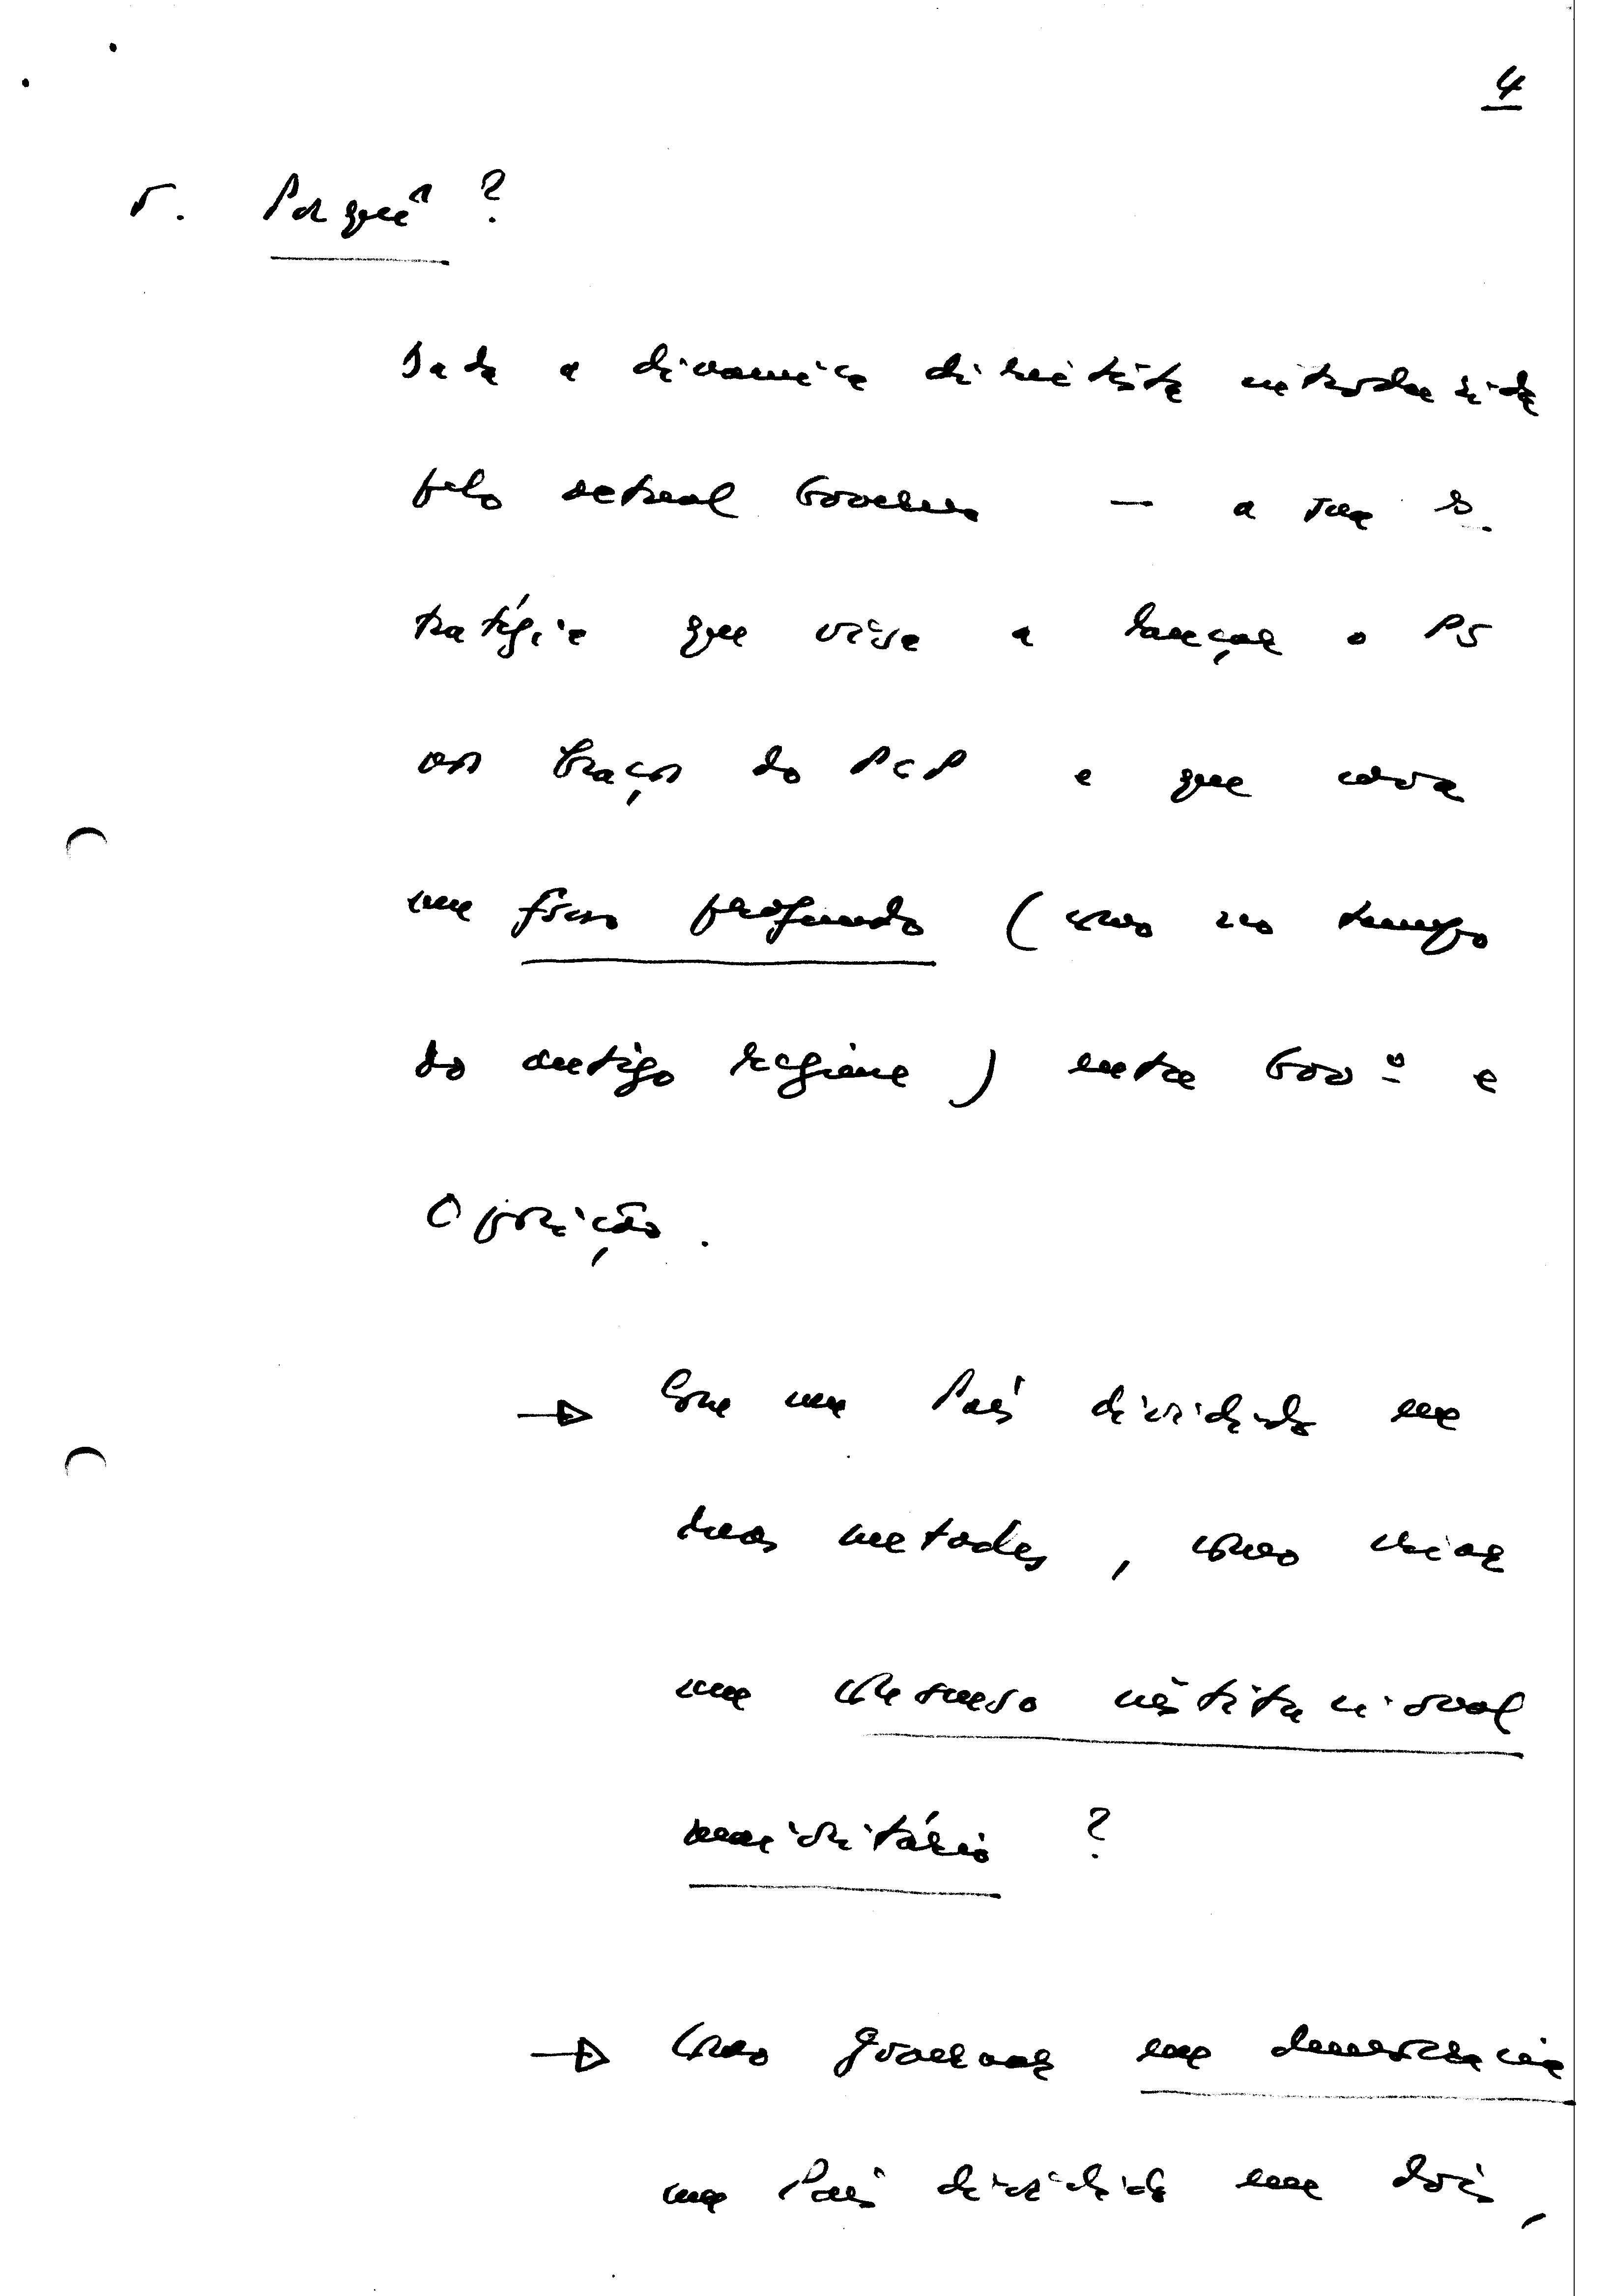 4
5. Porquê ?
Dada a dinamica direitista introduzida
pelo actual Governo — a sua es-
tratégia que visa a lançar o PS
nos braços do PCP e que cava
um fosso profundo (como no tempo
do antigo regime) entre Govº e
Oposição.
→ Com um País dividido em
duas metades, como criar
um consenso institucional
maioritário ?
→ Como governar em democracia
um País dividido em dois,